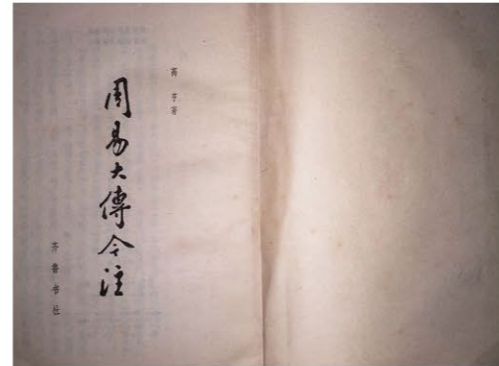 高亨著
周易大傳今注
齐鲁书社